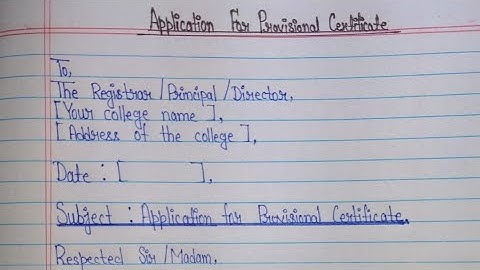 Application For Provisional Certificate
To,
The Registrar/Principal/Director,
[Your college name],
[Address of the college],
Date : [          ],
Subject : Application for Provisional Certificate.
Respected Sir/Madam,